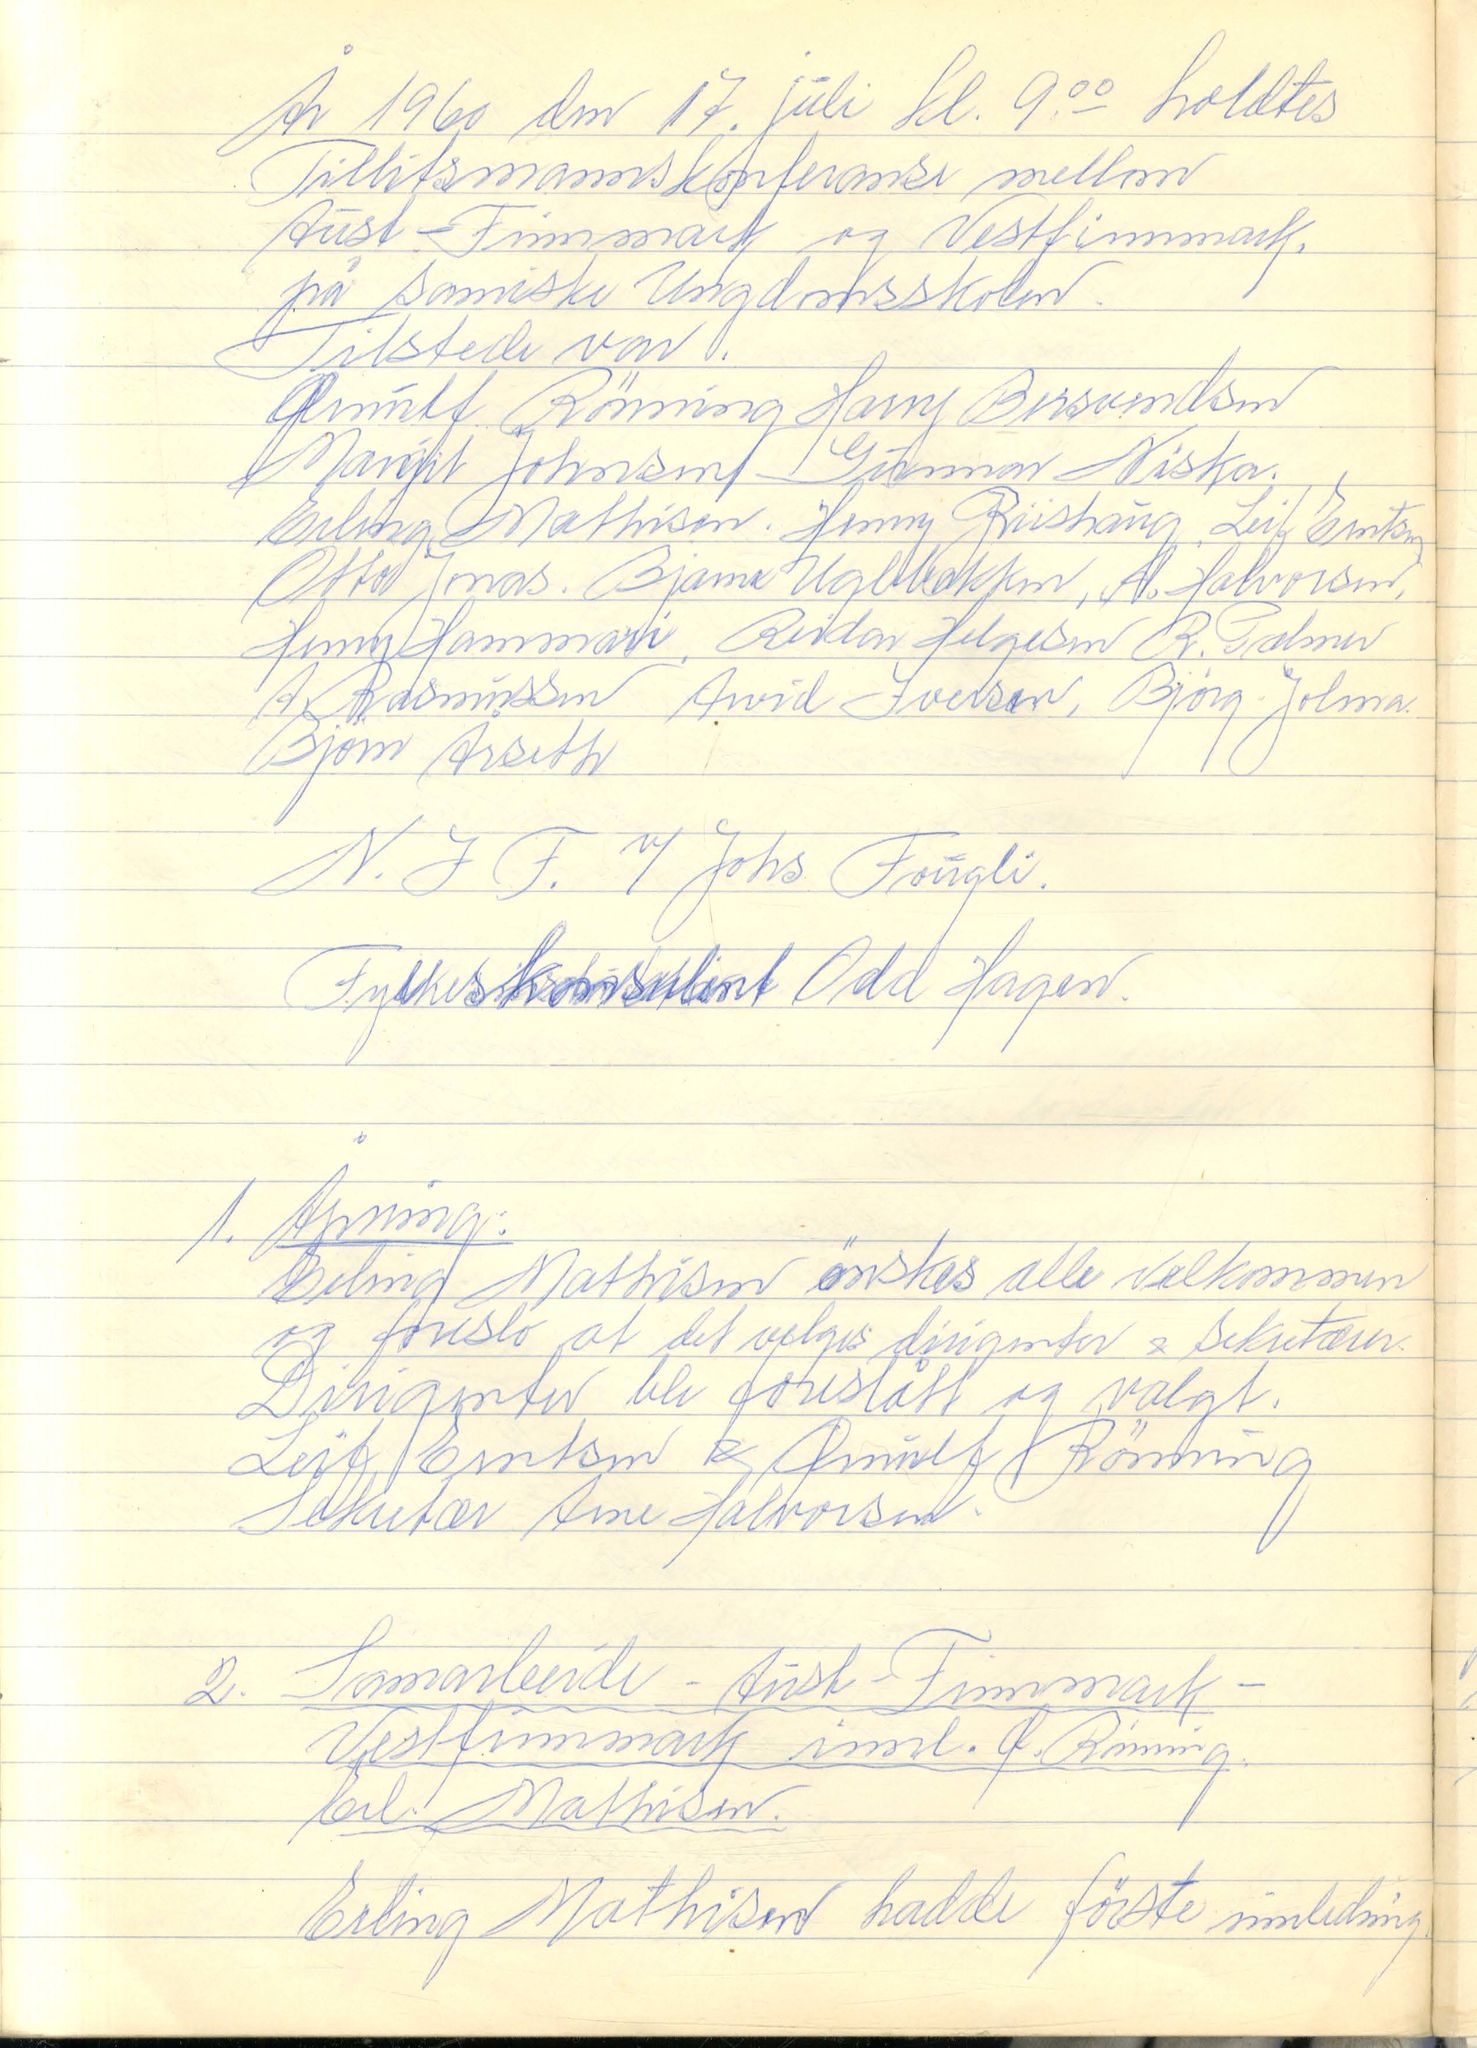 År 1960 den 17. juli kl. 9.00 holdtes
Tillitsmannskonferanse mellom
Aust-Finnmark og Vestfinnmark.
på samiske Ungdomsskolen.
Tilstede var.
Ørnulf Rönning Harry Bersvendsen
Margit Johnsen - Gunnar Niska.
Erling Mathisen. Henny Riishaug, Leif Erntsen
Otto Jonas. Bjarne Uglebakken, A. Halvorsen,
Henry Hammari, Reidar Helgesen R. Palmer
A. Rasmussen Arvid Iversen, Björg Jolma.
Björn Årseth
N. I F. v/ Johs Fougli.
Fylkeskonsulent Odd Hagen.
1. Åpning:
Erling Mathisen önskes alle velkommen
og foreslo at det velges dirigenter & sekretærer.
Dirigenter ble foreslått og valgt.
Leif Erntsen & Ørnulf Rönning
Sekretær Arne Halvorsen.
2. Samarbeide - Aust-Finnmark -
Vestfinnmark innl. Ø. Rönning.
Erl. Mathisen.
Erling Mathisen hadde förste innledning